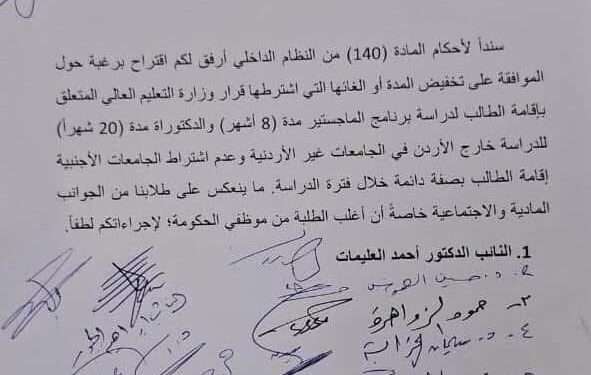 سنداً لأحكام المادة (140) من النظام الداخلي أرفق لكم اقتراح برغبة حول
الموافقة على تخفيض المدة أو الغائها التي اشترطها قرار وزارة التعليم العالي المتعلق
بإقامة الطالب لدراسة برنامج الماجستير مدة (8 أشهر) والدكتوراة مدة (20 شهراً)
للدراسة خارج الأردن في الجامعات غير الأردنية وعدم اشتراط الجامعات الأجنبية
إقامة الطالب بصفة دائمة خلال فترة الدراسة. ما ينعكس على طلابنا من الجوانب
المادية والاجتماعية خاصةً أن أغلب الطلبة من موظفي الحكومة؛ لإجراءاتكم لطفاً.
1. النائب الدكتور أحمد العليمات
٣- حمود الزواهرة
٤- د. سليمان